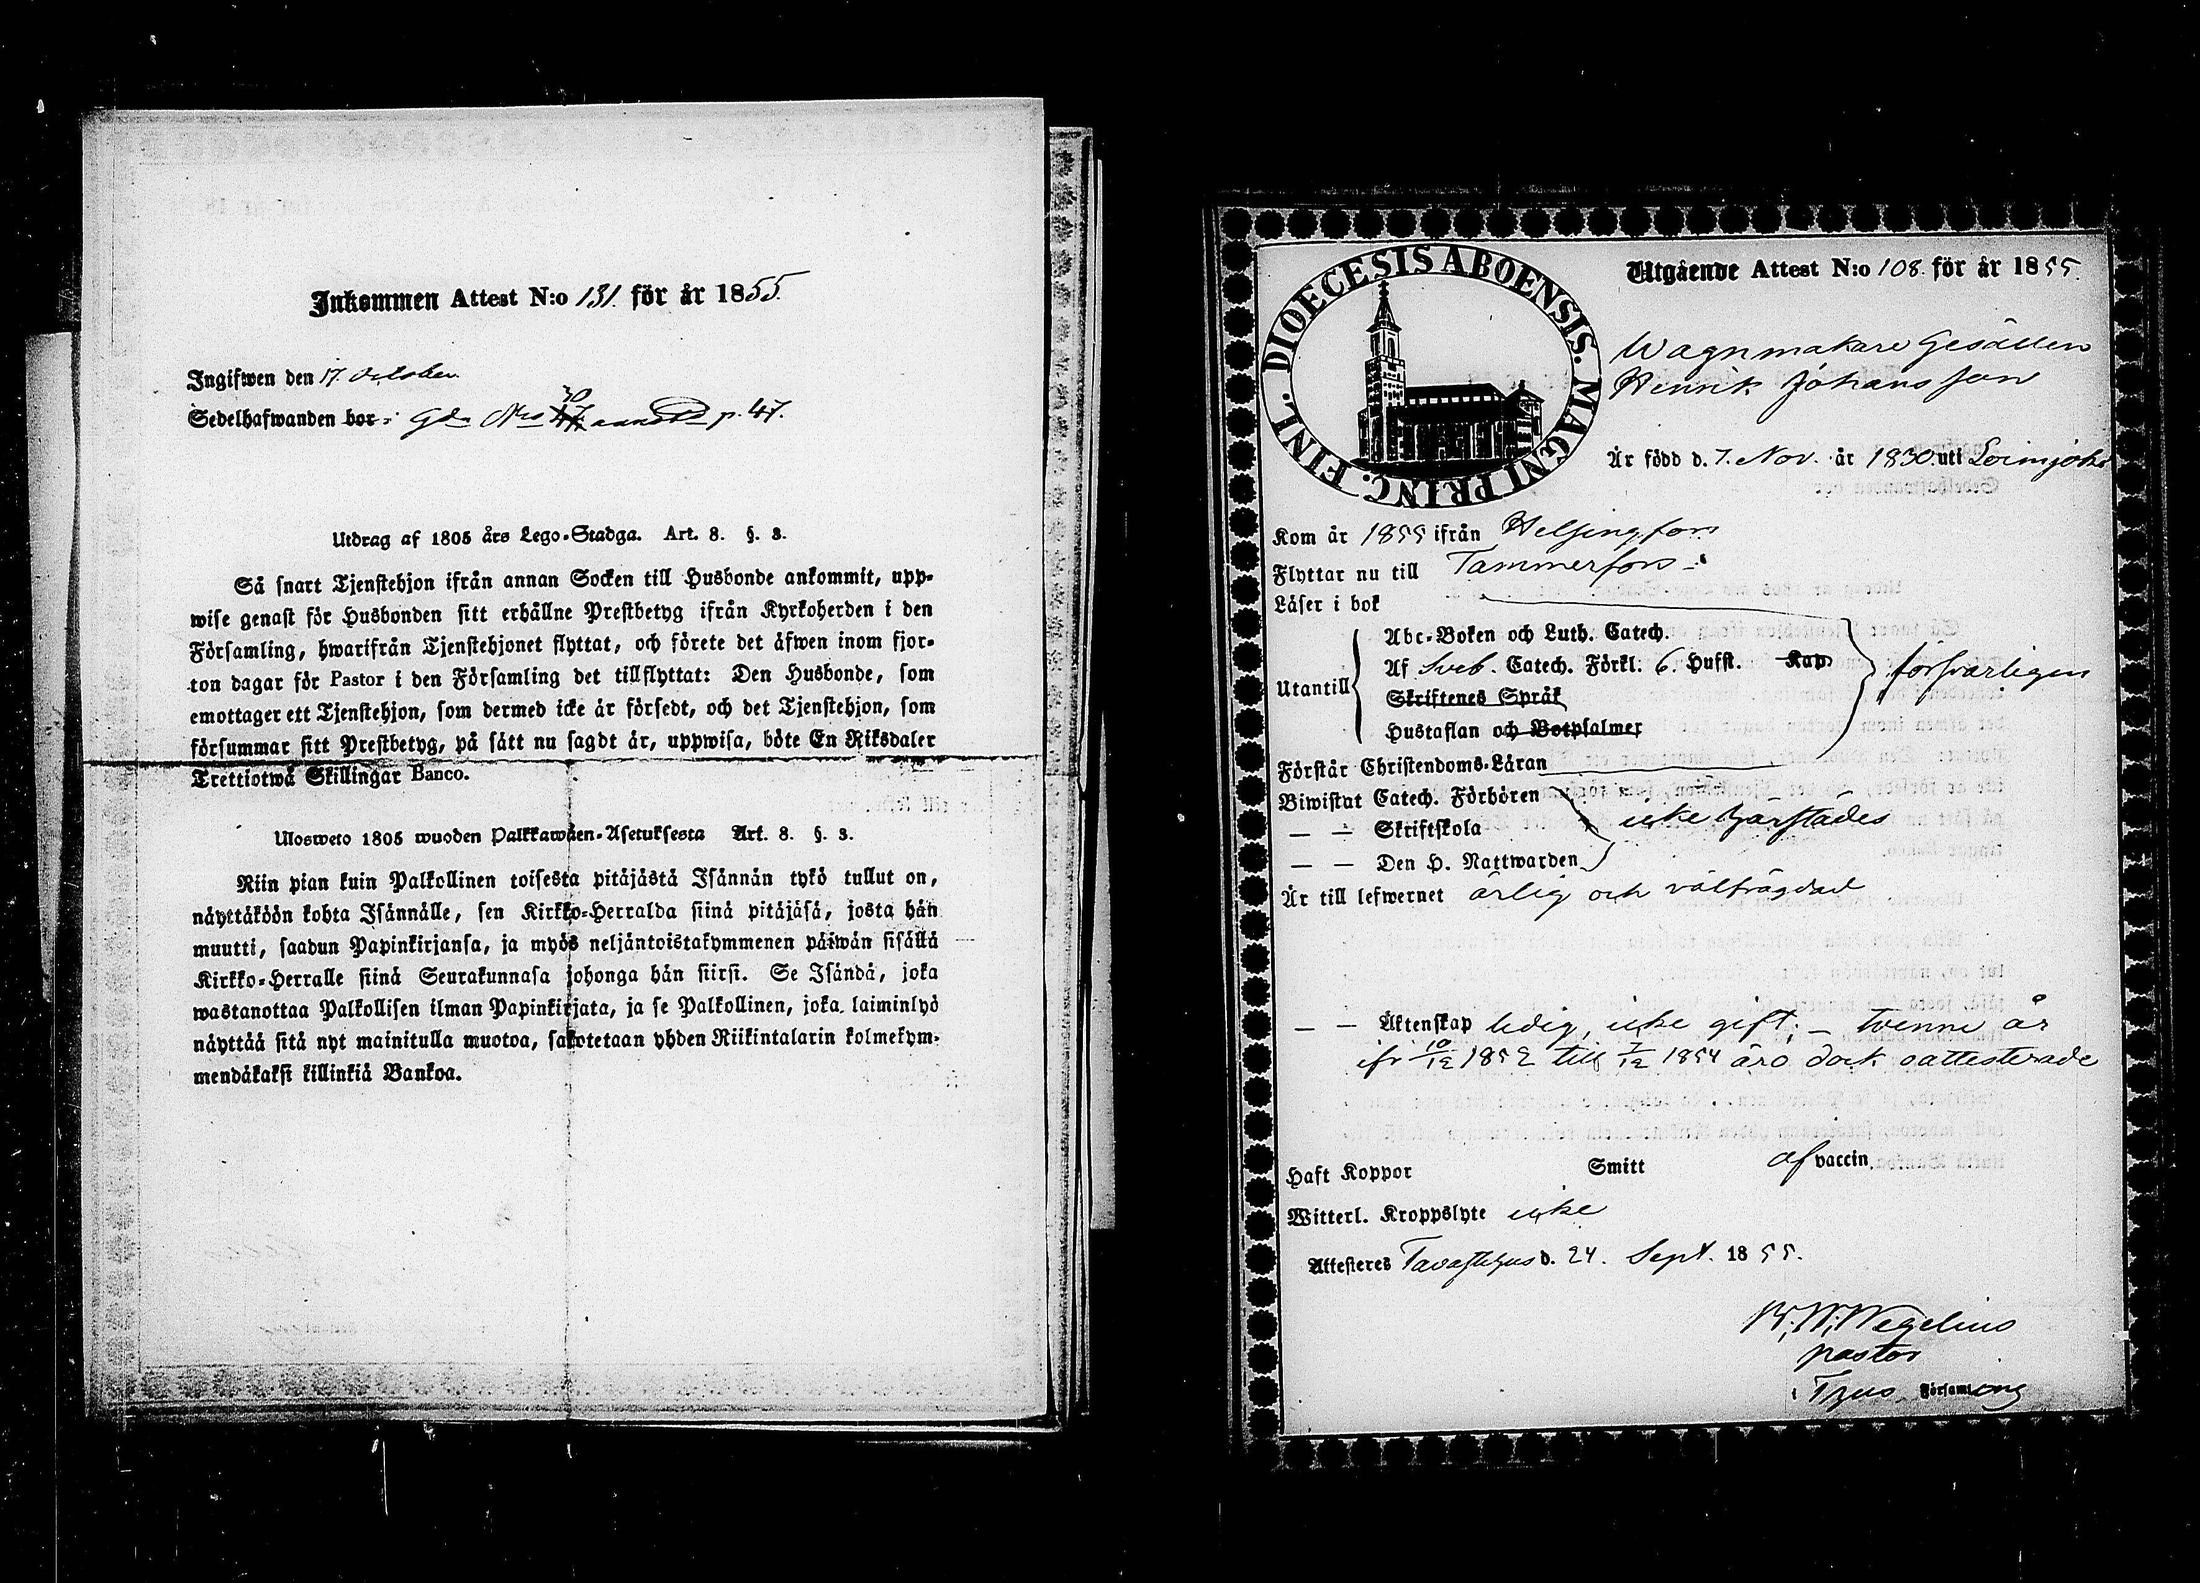 Inkommen Attest N:o 131. för år 1855.
Ingifwen den 17. October
Sedelhafwanden bor i Gdn N:ro 47 30 p. 47.
Utdrag af 1805 års Lego-Stadga. Art. 8. §. 3.
Så snart Tjenstehjon ifrån annan Socken till Husbonde ankommit, upp-
wise genast för Husbonden sitt erhållne Prestbetyg ifrån Kyrkoherden i den
Församling, hwarifrån Tjenstehjonet flyttat, och förete det äfwen inom fjor-
ton dagar för Pastor i den Församling det tillflyttat: Den Husbonde, som
emottager ett Tjenstehjon, som dermed icke är försedt, och det Tjenstehjon, som
försummar sitt Prestbetyg, på sätt nu sagdt är, uppwisa, böte En Riksdaler
Trettiotwå Skillingar Banco.
Ulosweto 1805 wuoden Palkkawäen-Asetuksesta Art. 8. §. 3.
Niin pian kuin Palkollinen toisesta pitäjästä Isännän tykö tullut on,
näyttäköön kohta Isännälle, sen Kirkko-Herralda siinä pitäjäsä, josta hän
muutti, saadun Papinkirjansa, ja myös neljäntoistakymmenen päiwän sisällä
Kirkko-Herralle siinä Seurakunnasa johonga hän siirsi. Se Isändä, joka
wastanottaa Palkollisen ilman Papinkirjata, ja se Palkollinen, joka laiminlyö
näyttää sitä nyt mainitulla muotoa, sakotetaan yhden Riikintalarin kolmekym-
mendäkaksi killinkiä Bankoa.
DIOECESIS ABOENSIS. MAGNI PRINC. FINL.
Utgående Attest N:o 108. för år 1855.
Wagnmakare Gesällen
Henrik Johansson
Är född d. 7. Nov. år 1830. uti Loimjoki
Kom år 1855 ifrån Helsingfors
Flyttar nu till Tammerfors
Läser i bok
Utantill
Abc-Boken och Luth. Catech.
Af Sveb. Catech. Förkl. 6. Hufst. Kap.
Skriftenes Språk
Hustaflan och Botpsalmer
försvarligen
Förstår Christendoms-Läran
Biwistat Catech. Förhören
— — Skriftskola
— — Den H. Nattwarden
icke härstädes
Är till lefwernet ärlig och välfrägdad
— — Äktenskap ledig, icke gift; – tvenne år
ifr 10/12 1852 till 7/12 1854 äro dock oattesterade
Haft Koppor Smitt af vaccin.
Witterl. Kroppslyte icke
Attesteres Tavastehus d. 24. Sept. 1855.
K. W. Wegelius
pastor
i Thus. Församling